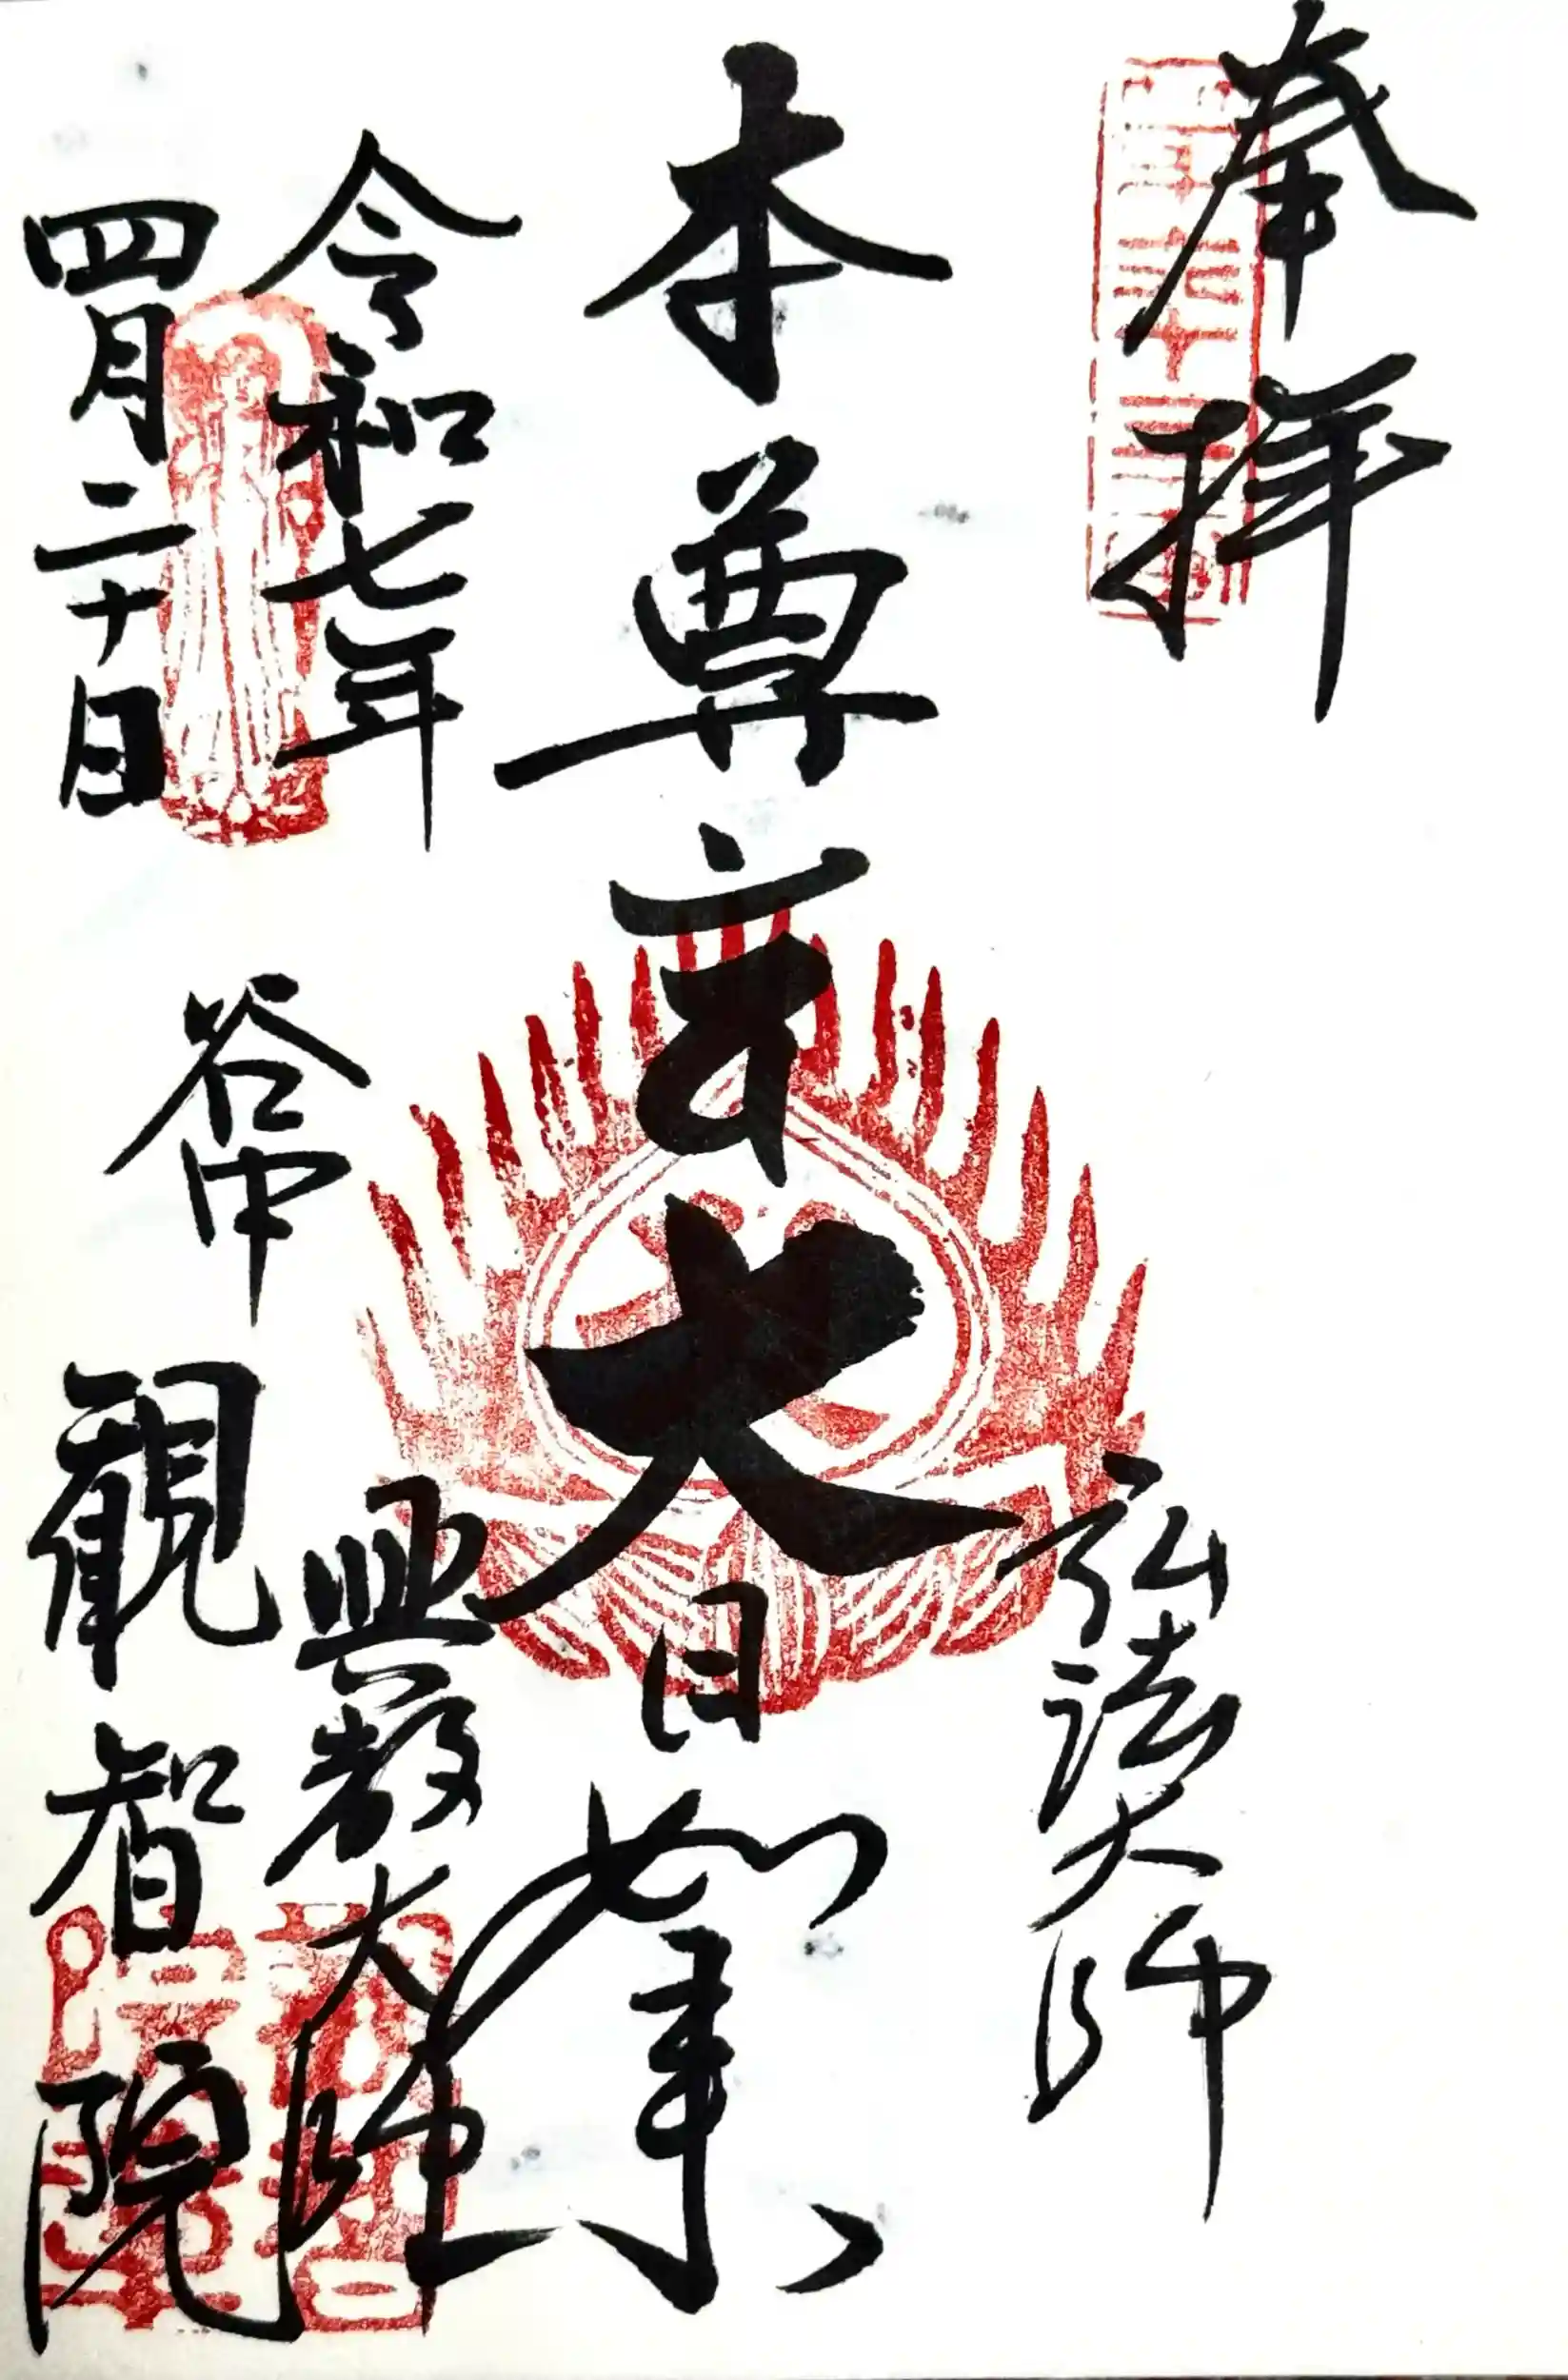 奉拝
弘法大師
本尊
大日如来
興教大師
令和七年
四月二十日
谷中
観智院